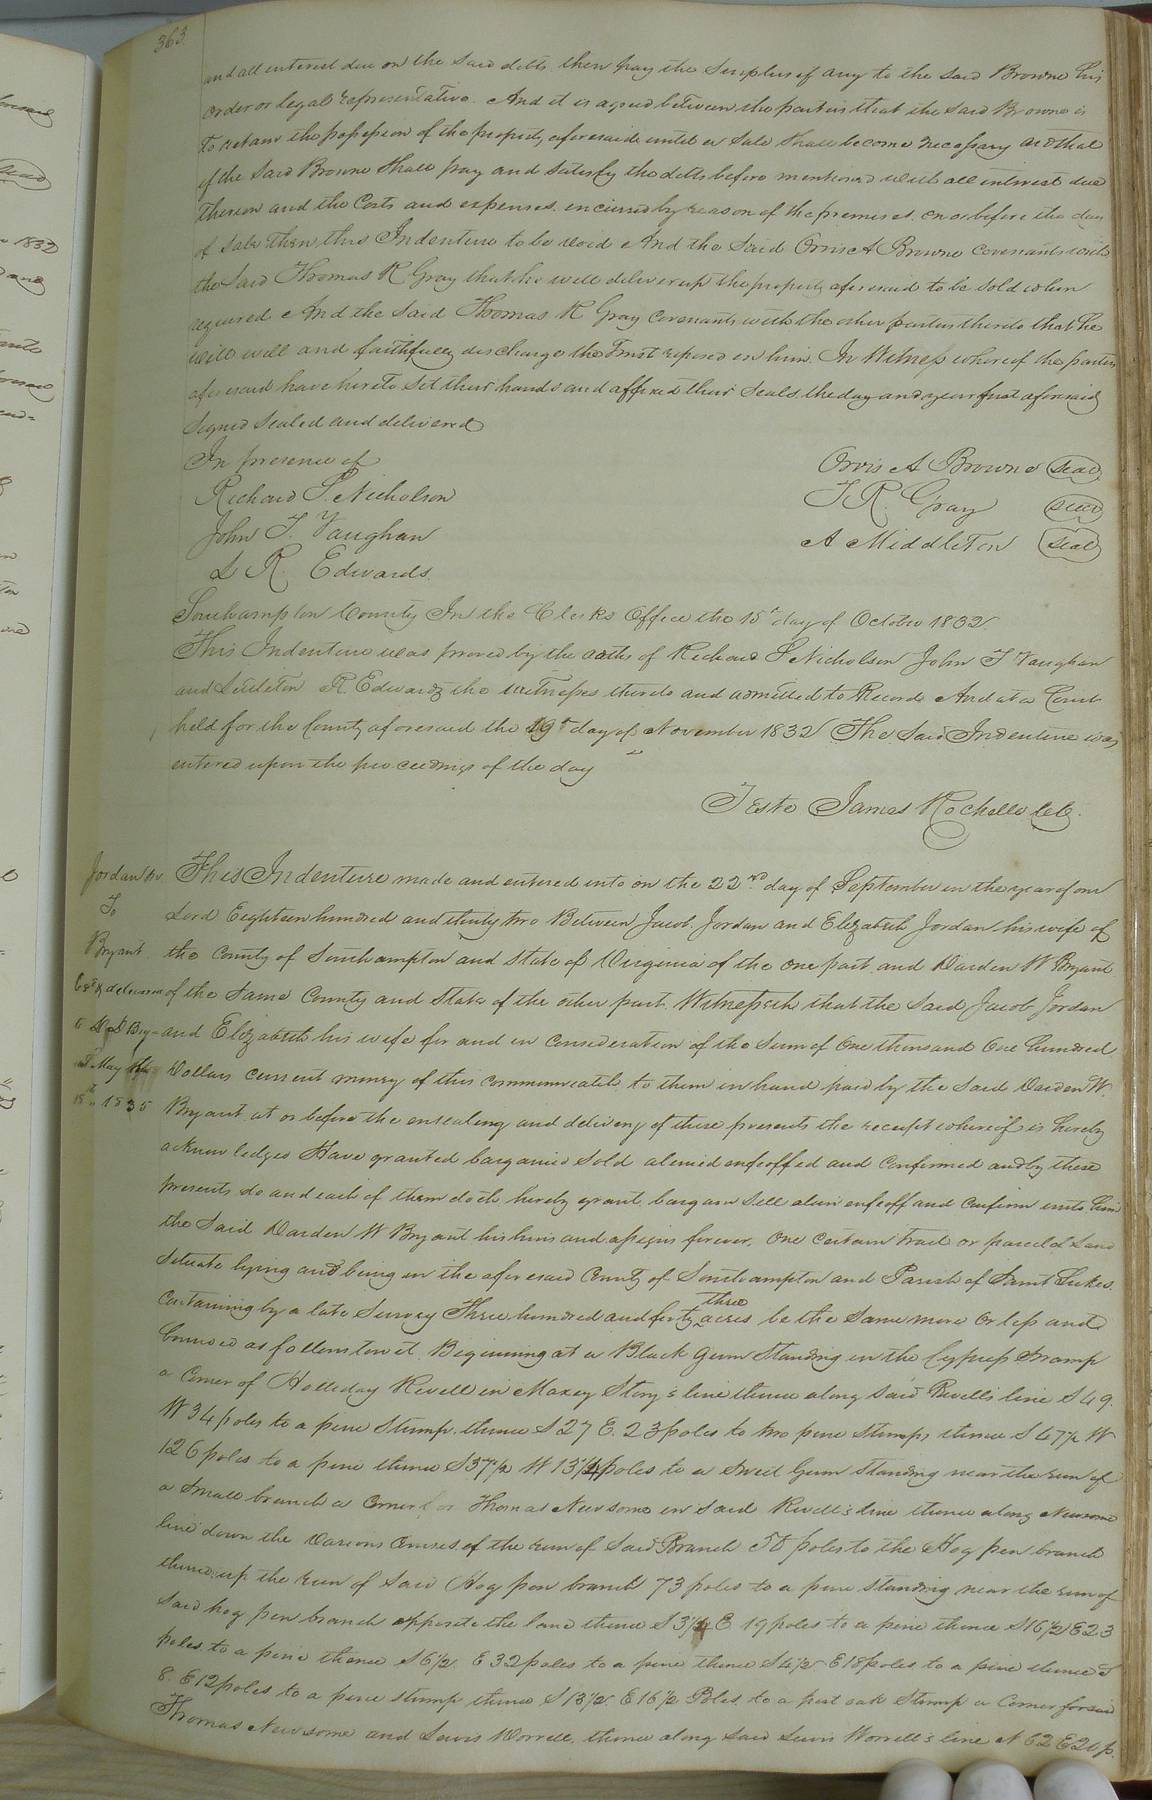 363
and all interest due on the said debts then pay the Surplus if any to the said Browne his
order or legal representative. And it is agreed between the parties that the said Browne is
to retain the possession of the property aforesaid until a Sale Shall become necessary and that
if the Said Browne Shall pay and satisfy the debts before mentioned with all interest due
thereon and the Costs and expenses incurred by reason of the premises, on or before the day
of Sale Then, this Indenture to be void And the Said Orris A Browne Covenants with
the Said Thomas R Gray that he will deliver up the property aforesaid to be Sold when
required And the Said Thomas R Gray Covenants with the other parties thereto that he
will well and faithfully discharge the Trust reposed in him. In Witness whereof the parties
aforesaid have hereto Set their hands and affixed their Seals the day and year first aforesaid
Signed Sealed and delivered
In presence of
Orris A Browne Seal
Richard S. Nicholson
T. R. Gray Seal
John T. Vaughan
A Middleton Seal
L R. Edwards.
Southampton County In the Clerks Office the 15th day of October 1832.
This Indenture was proved by the oaths of Richard S Nicholson John T Vaughan
and Littleton R. Edwards the witnesses thereto and admitted to Record And at a Court
held for the County aforesaid the 19th day of November 1832 The Said Indenture was
entered upon the proceedings of the day
Teste James Rochelle
Jordan &c
To
Bryant
delivered
May
1835
This Indenture made and entered into on the 22nd day of September in the year of our
Lord Eighteen hundred and thirty two Between Jacob Jordan and Elizabeth Jordan his wife of
the County of Southampton and State of Virginia of the one part and Darden W Bryant
of the Same County and State of the other part. Witnesseth that the Said Jacob Jordan
and Elizabeth his wife for and in Consideration of the Sum of One thousand One hundred
Dollars current money of this commonwealth to them in hand paid by the Said Darden W.
Bryant at or before the ensealing and delivery of these presents the receipt whereof is hereby
acknowledged Have granted bargained Sold aliened enfeoffed and Confirmed and by these
presents do and each of them doth hereby grant bargain Sell alien enfeoff and Confirm unto him
the Said Darden W Bryant his heirs and assigns forever, One Certain tract or parcel of Land
Situate lying and being in the aforesaid County of Southampton and Parish of Saint Lukes.
Containing by a late Survey Three hundred and forty three acres be the Same more or less and
bounded as follows towit. Beginning at a Black Gum Standing in the Cypress Swamp
a Corner of Holleday Revell in Maxey Story's line thence along Said Revells line S 49.
W 34 poles to a pine Stump. thence S 27 E. 23 poles to two pine Stumps thence S 47½ W
126 poles to a pine thence S37½ W 13¼ poles to a Sweet Gum Standing near the run of
a Small branch a Corner for Thomas Newsome in Said Revell's line thence along Newsome
line down the Various Courses of the run of Said Branch 58 poles to the Hog pen branch
thence up the run of Said Hog pen branch 73 poles to a pine Standing near the run of
Said hog pen branch opposite the lane thence S 3¼ E 19 poles to a pine thence S16½ E23
poles to a pine thence S6½ E 32 poles to a pine thence S 4½ E 18 poles to a pine thence S
8. E 12 poles to a pine Stump thence S 13½ E 16½ Poles to a post oak Stump a Corner for said
Thomas Newsome and Lewis Worrell, thence along Said Lewis Worrell's line N 62 E 20 p.